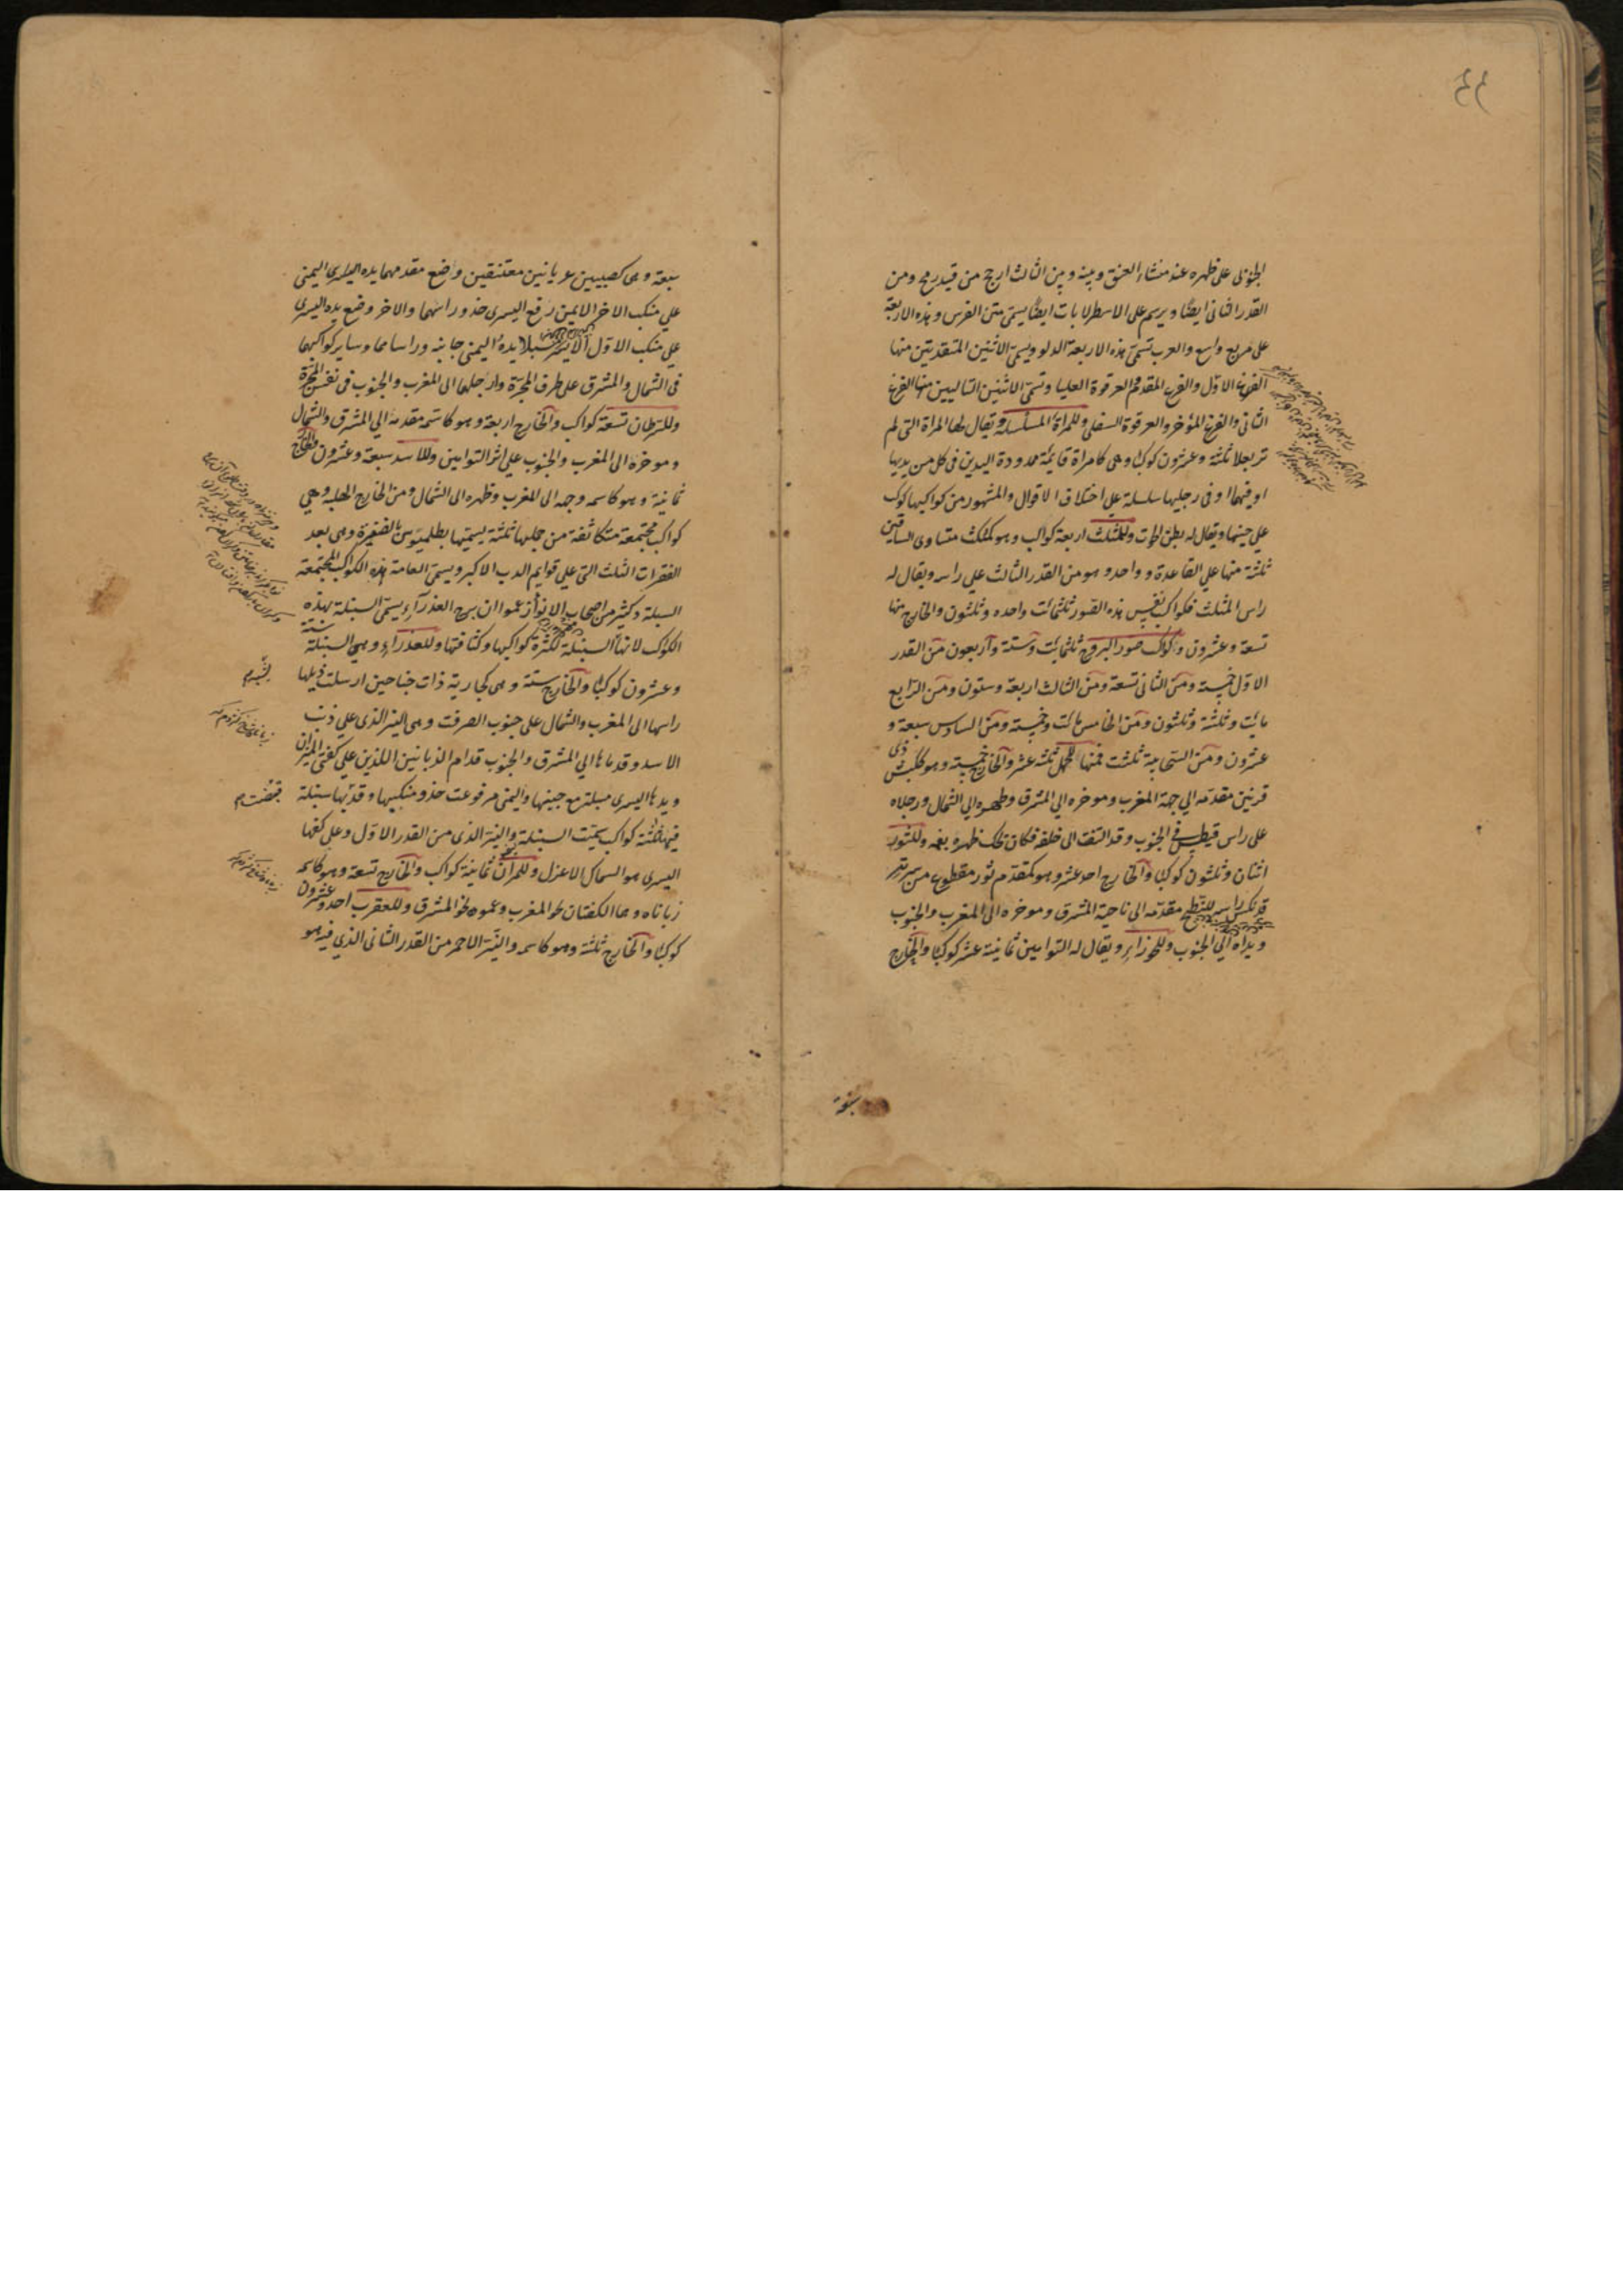 الجنوبى على ظهره عند منشاء العنق وبينه وبين الثالث ارجح من قيد رمح ومن
القدر الثانى ايضا ويرسم على الاسطرلابات ايضا يسمى متن الفرس وهذه الاربعة
على مربع واسع والعرب تسمى هذه الاربعة الدلو ويسمى الاثنين المتقدمين منها
الفرغ الاول والفرغ المقدم والعرقوة العليا وتسمى الاثنين التاليين منها الفرغ
الثانى والفرغ المؤخر والعرقوة السفلى وللمراة المسلسلة ويقال لها المراة التى لم
تر بعلا ثلثة وعشرون كوكبا وهى كامراة قايمة ممدودة اليدين فى كل من يديها
او فيهما او فى رجليها سلسلة على اختلاف الاقوال والمشهور من كواكبها كوكب
على جنبها ويقال له بطن الحوت وللمثلث اربعة كواكب وهو كمثلث متساوى الساقين
ثلثة منها على القاعدة وواحد وهو من القدر الثالث على راسه ويقال له
راس المثلث فكواكب نفس هذه الصور ثلثمائة واحده وثلثون والخارج منها
تسعة وعشرون وكواكب صور البروج ثلثمائة وستة واربعون من القدر
الاول خمسة ومن الثانى تسعة ومن الثالث اربعة وستون ومن الرابع
مائة وثلثة وثلثون ومن الخامس مائة وخمسة ومن السادس سبعة و
عشرون ومن السحابية ثلثة فمنها للحمل ثلثة عشر والخارج خمسة وهو ككبش ذى
قرنين مقدمه الى جهة المغرب وموخره الى المشرق وظهره الى الشمال ورجلاه
على راس قيطس فى الجنوب وقد التفت الى خلفه فكان يحك ظهره بفمه وللثور
اثنان وثلثون كوكبا والخارج احد عشر وهو كمقدم ثور مقطوع من سرته
قد نكس راسه للنطح مقدمه الى ناحية المشرق وموخره الى المغرب والجنوب
ويداه الى الجنوب وللجوزاء ويقال له التوامين ثمانية عشر كوكبا والخارج
سبعة
سبعة وهى كصبيين عريانين معتنقين واضع مقدمهما يده اليمنى
على منكب الاخر الايمن رفع اليسرى حذو راسهما والاخر وضع يده اليسرى
على منكب الاول الايسر مسبلا يده اليمنى جانبه وراساهما وساير كواكبهما
فى الشمال والمشرق على طرف المجرة وارجلهما الى المغرب والجنوب فى نفس المجرة
وللسرطان تسعة كواكب والخارج اربعة وهو كاسمه مقدمه الى المشرق والشمال
وموخره الى المغرب والجنوب على اثر التوامين وللاسد سبعة وعشرون والخارج
ثمانية وهو كاسمه وجهه الى المغرب وظهره الى الشمال ومن الخارج الهلبة وهى
كواكب مجتمعة متكاثفة من جملها ثلثة يسميها بطلميوس الضفيرة وهى بعد
الفقرات الثلث التى على قوايم الدب الاكبر ويسمى العامة هذه الكواكب المجتمعة
السنبلة وكثير من اصحاب الانواء زعموا ان برج العذراء يسمى السنبلة بهذه
الكواكب لانها السنبلة لكثرة كواكبها وكثافتها وللعذراء وهى السنبلة ستة
وعشرون كوكبا والخارج ستة وهى كجارية ذات جناحين ارسلت ذيلها
راسها الى المغرب والشمال على جنوب الصرفة وهى النير الذى على ذنب
الاسد وقدماها الى المشرق والجنوب قدام الزبانين اللذين على كفتى الميزان
ويدها اليسرى مسبلة مع جنبها واليمنى مرفوعة حذو منكبيها وقد بها سنبلة
فيها ثلثة كواكب سميت السنبلة والنير الذى من القدر الاول وعلى كفها
اليسرى هو السماك الاعزل وللميزان ثمانية كواكب والخارج تسعة وهو كاسمه
زباناه وهما الكفتان نحو المغرب وعموده نحو المشرق وللعقرب احد وعشرون
كوكبا والخارج ثلثة وهو كاسمه والنير الاحمر من القدر الثانى الذى فيه هو